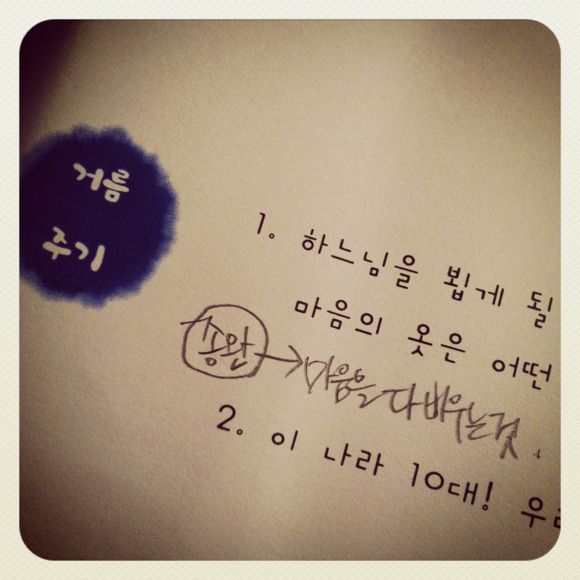 거름
주기
1. 하느님을 뵙게 될
마음의 옷은 어떤
송완 → 마음을 다 비우는것.
2. 이 나라 10대! 우리